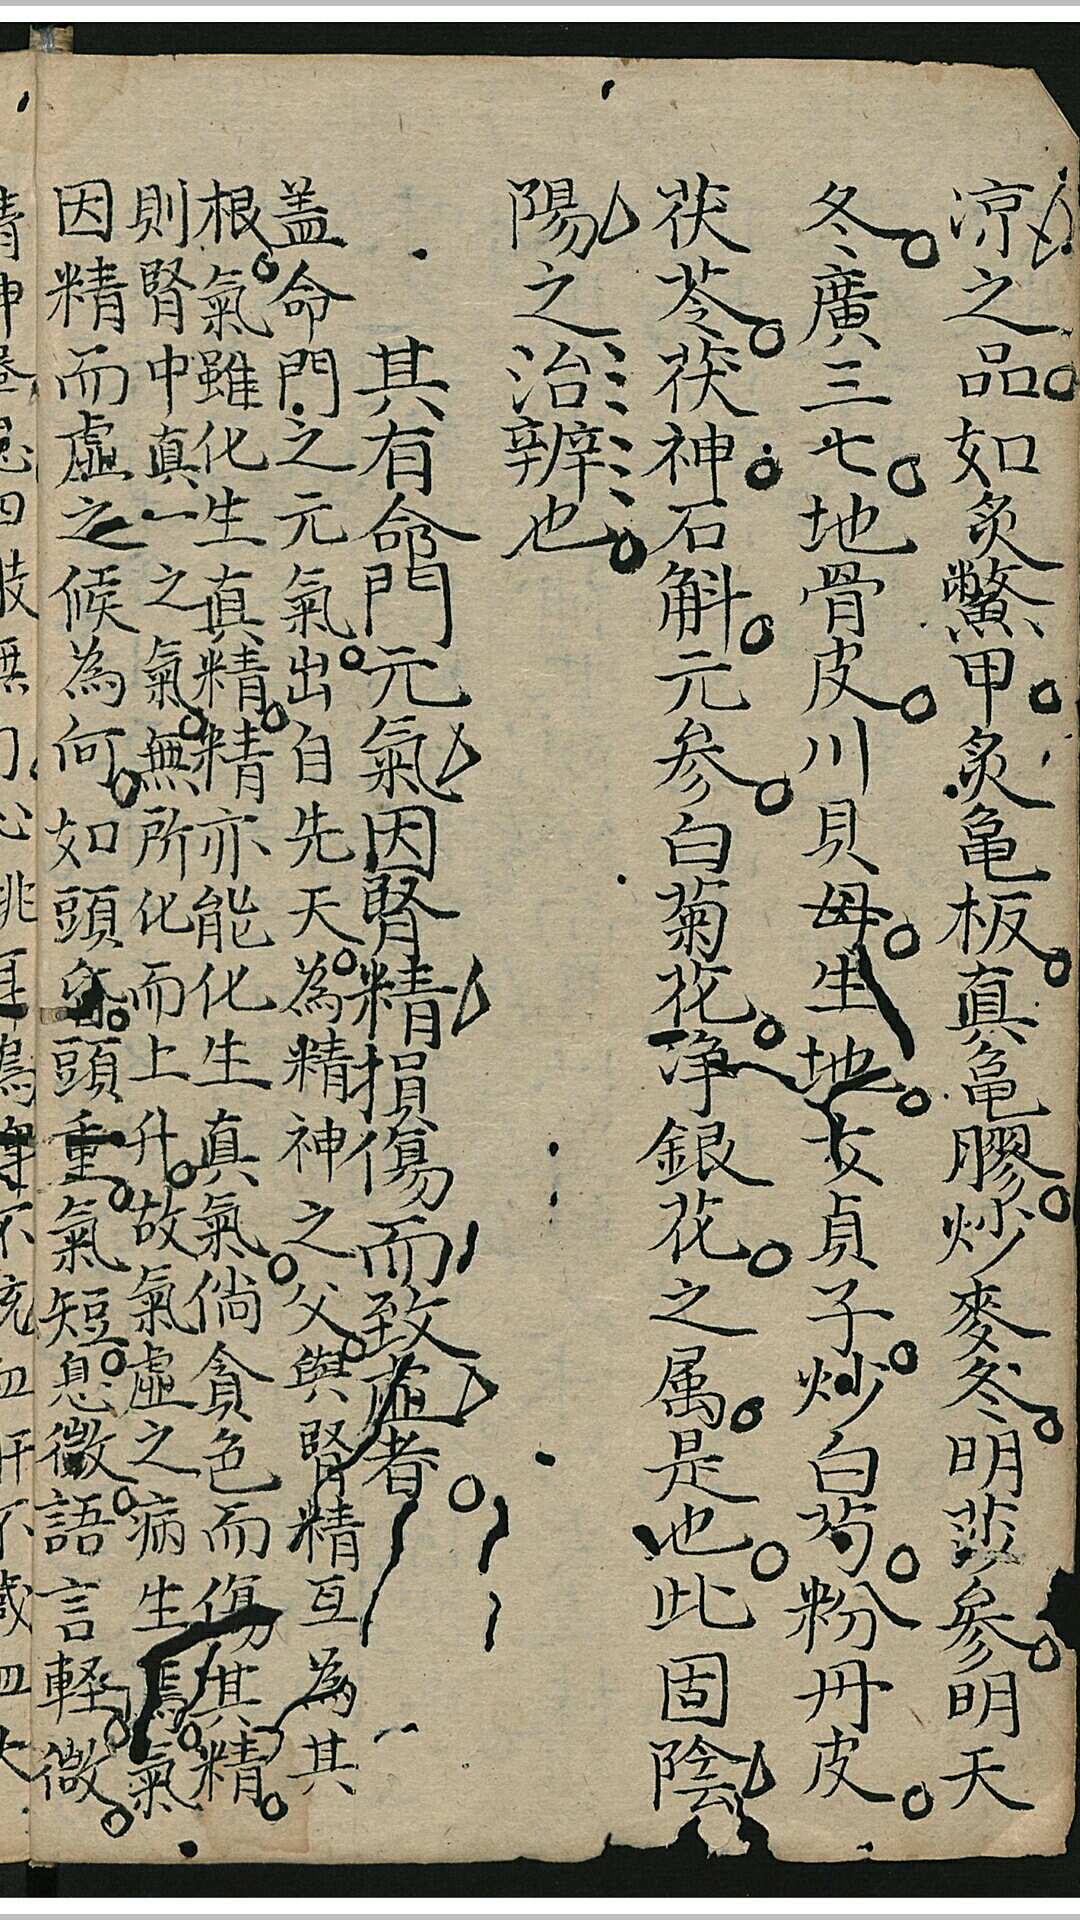 凉之品如炙鱉甲炙亀板真亀膠炒麥冬明蔘參明天
冬廣三七地骨皮川貝母生地女貞子炒白芍粉丹皮
茯苓茯神石斛元参白菊花净銀花之属是也此固陰
陽之治辨也
其有命門元氣因腎精損傷而致虛者
盖命門之元氣出自先天為精神之父與腎精互為其
根氣雖化生真精精亦能化生真氣倘貪色而傷其精
則腎中真一之氣無所化而上升故氣虛之病生焉氣
因精而虛之候為何如頭暈頭重氣短息微語言軽微